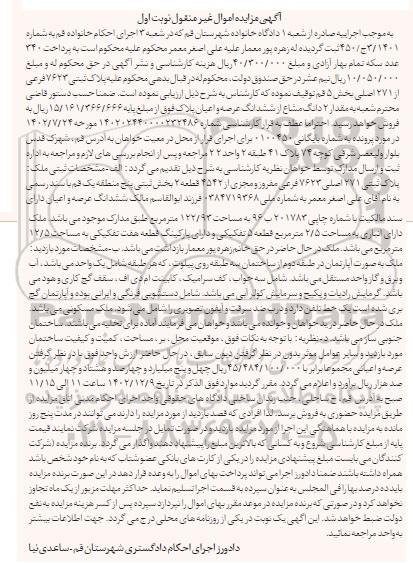 آگهی مزایده اموال غیر منقول نوبت اول
به موجب اجراییه صادره از شعبه ۱ دادگاه خانواده شهرستان قم که در شعبه ۳ اجرای احکام خانواده قم به شماره
۳/۱۴۰۱ج/۴۵۰ ثبت گردیده له زهره پور معمار علیه علی اصغر معمر محکوم علیه محکوم است به پرداخت ۳۴۰
عدد سکه تمام بهار آزادی و مبلغ ۴۰/۳۰۰/۰۰۰ ریال هزینه کارشناسی و نشر آگهی در حق محکوم له و مبلغ
۱۰/۰۵۰/۰۰۰ ریال نیم عشر در حق صندوق دولت، محکوم له در قبال بدهی محکوم علیه پلاک ثبتی ۷۶۲۳ فرعی
از ۲۷۱ اصلی بخش ۵ قم توقیف نموده که کارشناس به شرح ذیل ارزیابی نموده است. ضمنا حسب دستور قاضی
محترم شعبه به مقدار ۲ دانگ مشاع از ششدانگ عرصه و اعیان پلاک فوق از مبلغ پایه ۱۵/۱۶۱/۳۶۶/۶۶۶ ریال به
فروش خواهد رسید. احتراما عطف به قرار کارشناسی شماره ۱۴۰۲۰۲۴۴۰۰۰۰۲۳۲۴۸۶ مورخه ۱۴۰۲/۷/۲۴
در مورد پرونده به شماره بایگانی ۰۱۰۰۴۵۰ برای اجرای قرار از محل در معیت خواهان به آدرس قم، شهرک قدس
بلوار ولیعصر شرقی کوچه ۷۴ پلاک ۴۱ طبقه ۲ واحد ۲۲ مراجعه و پس از انجام بررسی های لازم و مراجعه به اداره
ثبت و ارسال مدارک توسط خواهان نظریه کارشناسی به شرح ذیل تقدیم می گردد: الف- مشخصات ثبتی ملک:
پلاک ثبتی ۲۷۱ اصلی ۷۶۲۳ فرعی مفروز و مجزی از ۴۵۴۲ قطعه ۲ بخش ثبتی پنج منطقه یک قم با سند رسمی
به نام آقای علی اصغر معمر به شماره ملی ۰۳۸۴۷۱۹۳۶۸ فرزند ابوالقاسم مالک ششدانگ عرصه و اعیان دارای
سند مالکیت با شماره چاپی ۲۰۱۷۸۳ ب ۹۶ به مساحت ۱۲۲/۹۳ مترمربع طبق مدارک موجود می باشد. ملک
دارای انباری به مساحت ۲/۵ مترمربع قطعه ۵ تفکیکی و دارای پارکینگ قطعه هفت تفکیکی به مساحت ۱۲/۵
مترمربع می باشد. ملک در حال حاضر در حق خانم زهره پور معمار بازداشت می باشد. ب-مشخصات مورد بازدید:
ملک به صورت آپارتمان در طبقه دوم از ساختمان سه طبقه روی پیلوت، که هر طبقه شامل یک واحد می باشد، آب
و برق و گاز واحد مستقل می باشد. شامل سه خواب، کف سرامیک، کابینت ام دی اف، سقف گچ کاری و هود می
باشد. گرمایش رادیات و پکیج و سرمایش کولر آبی می باشد. شامل دستشویی فرنگی و ایرانی بوده و آپارتمان گچ
بری شده است یک خط تلفن دارد و درب ضد سرقت و آیفون تصویری را شامل می شود. ملک مسکونی می باشد.
ملک در حال حاضر در ید خواهان و خوانده می باشد و خواهان می فرمایند آماده برای تخلیه می باشند. ساختمان
جنوبی ساز می باشد. د-نظریه: با توجه به نکات فوق، موقعیت محل، بر، مساحت، کمیت و کیفیت ساختمان
مورد بازدید و سایر عوامل موثر بدون در نظر گرفتن دیون سابق، در حال حاضر ارزش واحد فوق با در نظر گرفتن
عرصه و اعیانی مجموعا برابر با ۴۵/۴۸۴/۱۰۰/۰۰۰ ریال چهل و پنج میلیارد و چهارصد و هشتاد و چهار میلیون و
صد هزار ریال برآورد و اعلام می گردد. مقرر گردید موارد فوق الذکر در تاریخ ۱۴۰۲/۱۲/۹ ساعت ۱۱ الی ۱۱/۱۵
صبح به آدرس قم، خ ساحلی، جنب میدان ساختی، دادگاه های حقوقی واحد اجرای احکام مدنی اتاق مزایده از
طریق مزایده حضوری به فروش برسد. لذا افرادی که قصد بازدید از مورد مزایده را دارند می توانند در مدت پنج روز
مانده به مزایده با هماهنگی این اجرا از مورد مزایده بازدید و در صورت تمایل در جلسه مزایده شرکت نمایند. قیمت
پایه از مبلغ کارشناسی شروع و به کسانی که بالاترین مبلغ را پیشنهاد دهند واگذار می گردد. برنده مزایده (شرکت
کنندگان می بایست مبلغ پیشنهادی مزایده را در یکی از کارت های بانکی عضو شتاب که به نام خود شخص باشد
همراه داشته باشند ضمنا دادورز اجرا می تواند پرداخت بهای اموال را به وعده قرار دهد در این صورت برنده مزایده
باید ده درصد بها را فی المجلس به عنوان سپرده به قسمت اجرا تسلیم نماید. حداکثر مهلت مزبور از یک ماه تجاوز
نخواهد کرد و در صورتی که برنده مزایده در موعد مقرر بهای اموال را نپردازد سپرده پس از کسر هزینه مزایده به نفع
دولت ضبط خواهد شد. این آگهی یک نوبت در یکی از روزنامه های محلی درج می گردد. جهت اطلاعات بیشتر
به واحد مراجعه نمائید.
دادورز اجرای احکام دادگستری شهرستان قم-ساعدی نیا